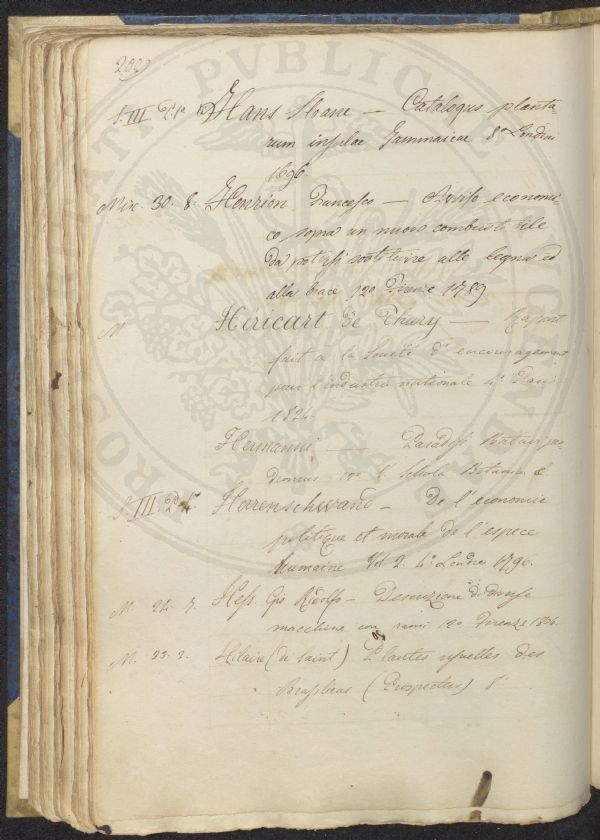 200
S. III. Hans Sloane — Catalogus planta-
rum insulae Jammaicae 8° Londini
1696.
Mix. 30. 8. Henrion Francesco — Avviso economi
co sopra un nuovo combustibile
da potersi sostituire alle legna ed
alla brace 12° Firenze 1789
M Hericart de Thury — Raport
fait a la Société d'encouragement
pour l'industrie nationale 4° Paris
1824.
Hermanni — Paradisi Batavi pro
dromus Schola Botanica
S. III. Herrenschwand — De l'economie
politique et morale de l'espece
humaine Vol 2. 4° Londres 1796.
M. 24. 7. Hess. Gio Ridolfo — Descrizione di diverse
macchine con rami 12° Firenze
M. 33. 2. Hilaire (de Saint) Plantes usuelles des
Brasiliens (Prospectus) 8°